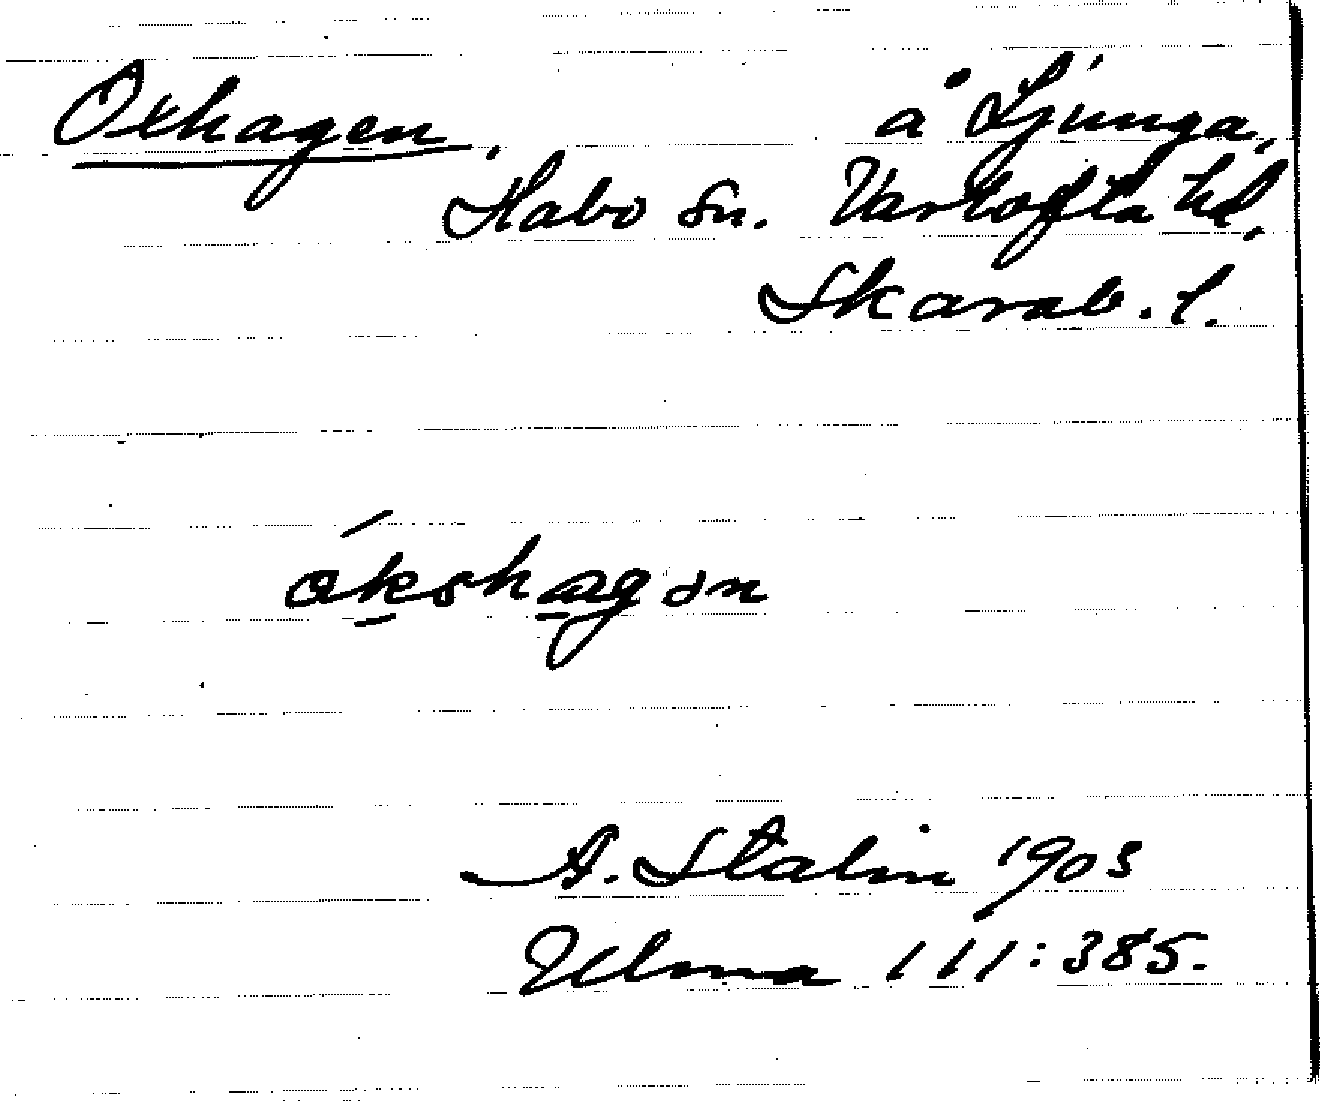 Oxhagen, å Ljunga,
Habo sn. Vartofta hd,
Skarab. l.
ókshagən
A. Stalin 1903
Ulma 111:385.